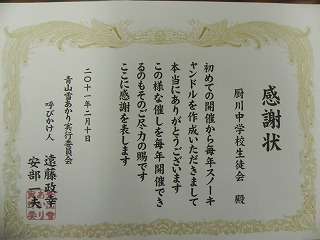 感謝状
厨川中学校生徒会 殿
初めての開催から毎年スノーキ
ャンドルを作成いただきまして
本当にありがとうございます
この様な催しを毎年開催でき
るのもそのご尽力の賜です
ここに感謝を表します
二〇十一年二月十日
青山雪あかり実行委員会
呼びかけ人 遠藤政幸
安部一夫